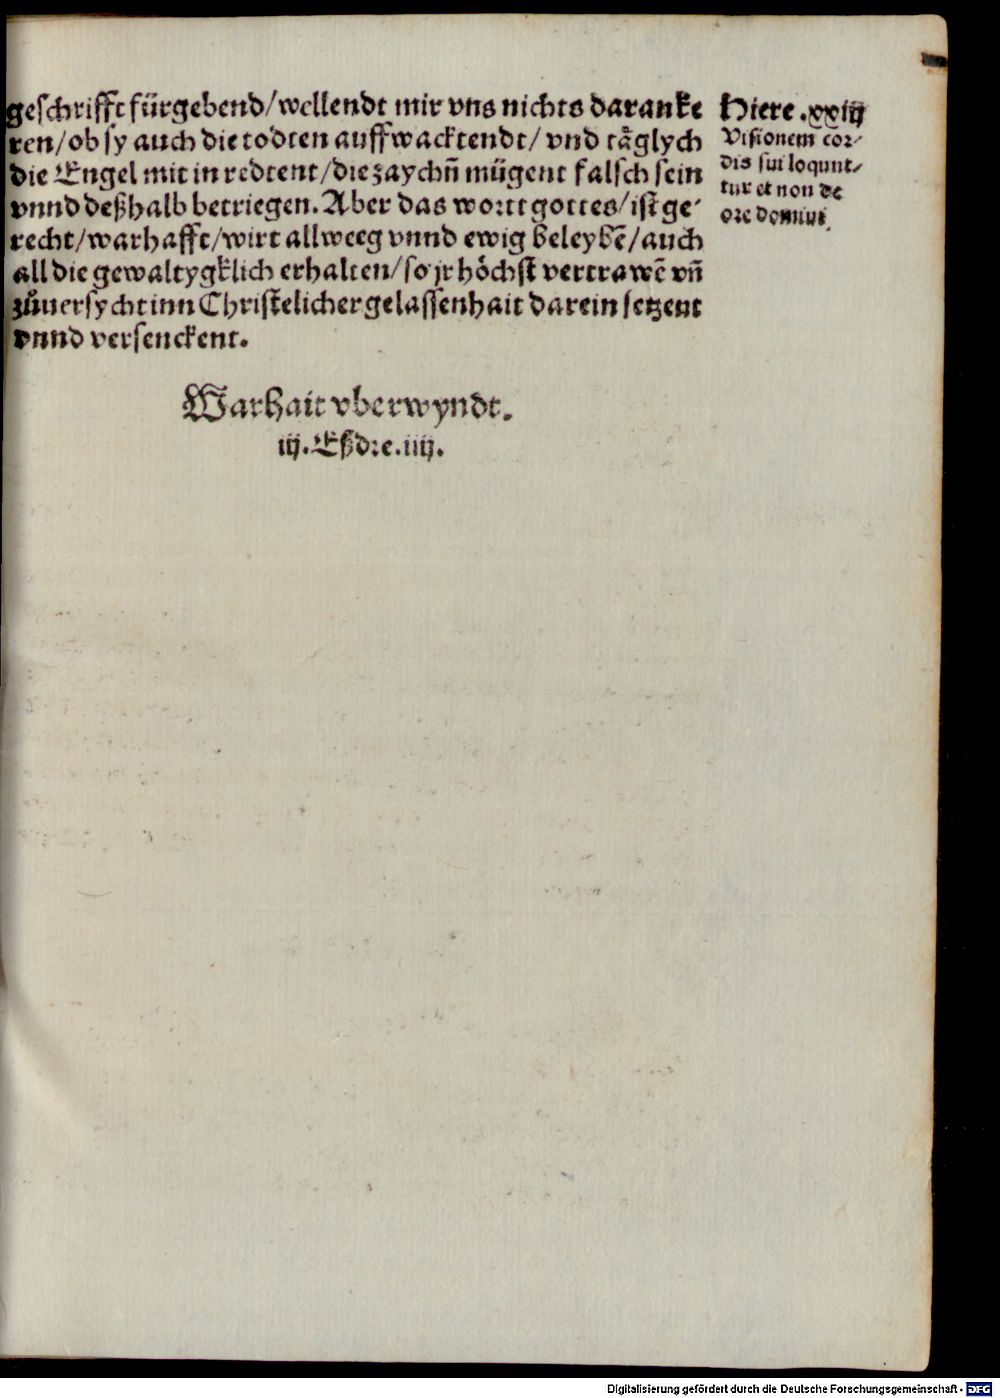 geschrifft fürgebend/wellendt mir vns nichts daranke
ren/ob sy auch die todten auffwacktendt/ vnd tåglych
die Engel mit in redtent/die zaychñ mügent falsch sein
vnnd deßhalb betriegen. Aber das wortt gottes/ist ge-
recht/warhafft/wirt allweeg vnnd ewig beleybẽ/auch
all die gewaltygklich erhalten/so jr höchst vertrawẽ vñ
zůuersycht inn Christelicher gelassenhait darein setzent
vnnd versenckent.
Hiere .xxiij
Visionem cor-
dis sui loqunt-
tur et non de
ore domini.
Warhait vberwyndt.
iij. Eßdre. iiij.
Digitalisierung gefördert durch die Deutsche Forschungsgemeinschaft - DFG